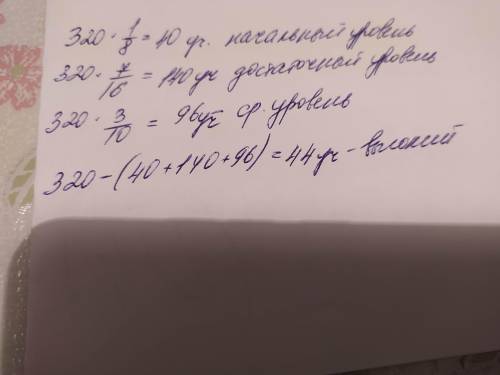 320 · 1/8 = 40 уч. начальный уровень
320 · 7/16 = 140 уч достаточный уровень
320 · 3/10 = 96 уч ср. уровень
320 - (40 + 140 + 96) = 44 уч - высокий